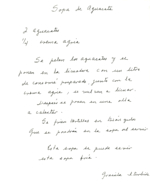 Sopa de Aguacate
2 aguacates
1/4 crema agria
Se pelan los aguacates y se
ponen en la licuadora con un litro
de consomé preparado junto con la
crema agria, se vuelven a licuar.
Después se ponen en una olla
a calentar.
Se pican tortillas en triángulo
que se pondrán en la sopa al servir
Esta sopa se puede servir
esta sopa fría
Graciela